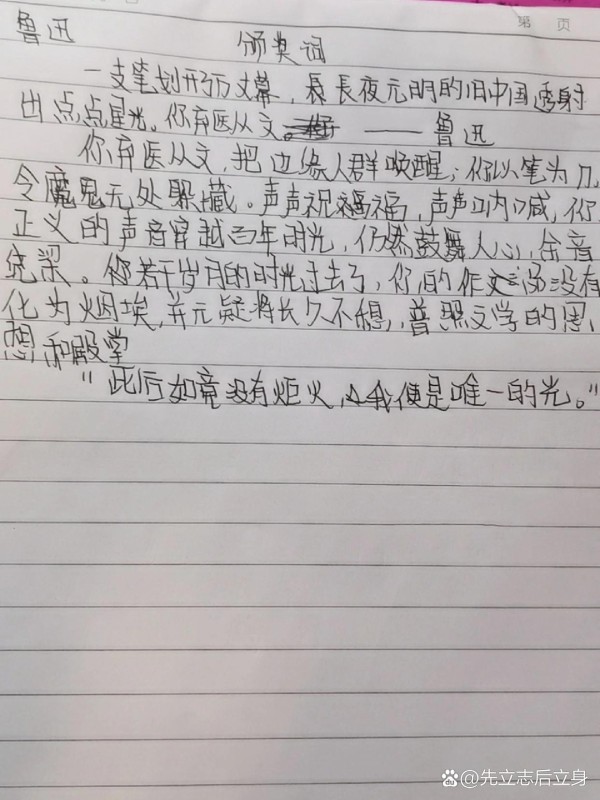 第 页
鲁迅
颁奖词
一支笔划开了历文幕,長夜无明的旧中国透射
出点点星光。你弃医从文。——鲁迅
你弃医从文,把边缘人群唤醒;你以笔为刀,
令魔鬼无处躲藏。声声祝福,声声呐喊,你
正义的声音穿越百年时光,仍燃鼓舞人心,余音
绕梁。你若干岁月的时光过去了,你的作文没有
化为烟埃,并无疑将长久不想,普照文学的思
想和殿堂
"此后如竟没有炬火,我便是唯一的光。"
@先立志后立身